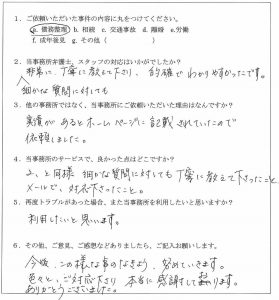 1. ご依頼いただいた事件の内容に丸をつけてください。
a. 債務整理 b. 相続 c. 交通事故 d. 離婚 e. 労働
f. 成年後見 g. その他( )
2. 当事務所弁護士、スタッフの対応はいかがでしたか?
非常に、丁寧に教えて下さり、的確でわかりやすかったです。
細かな質問に対しても
3. 他の事務所ではなく、当事務所にご依頼いただいた理由はなんですか?
実績があるとホームページに記載されていたので
依頼しました。
4. 当事務所のサービスで、良かった点はどこですか?
2、と同様 細かな質問に対しても丁寧に教えて下さったこと
メールで、対応下さったこと。
5. 再度トラブルがあった場合、また当事務所を利用したいと思いますか?
利用したいと思います。
6. その他、ご意見、ご感想などありましたら、ご記入お願いします。
今後、この様な事のなきよう、努めていきます。
色々と、ご対応下さり 本当に感謝して
ります。
ありがとうございました。